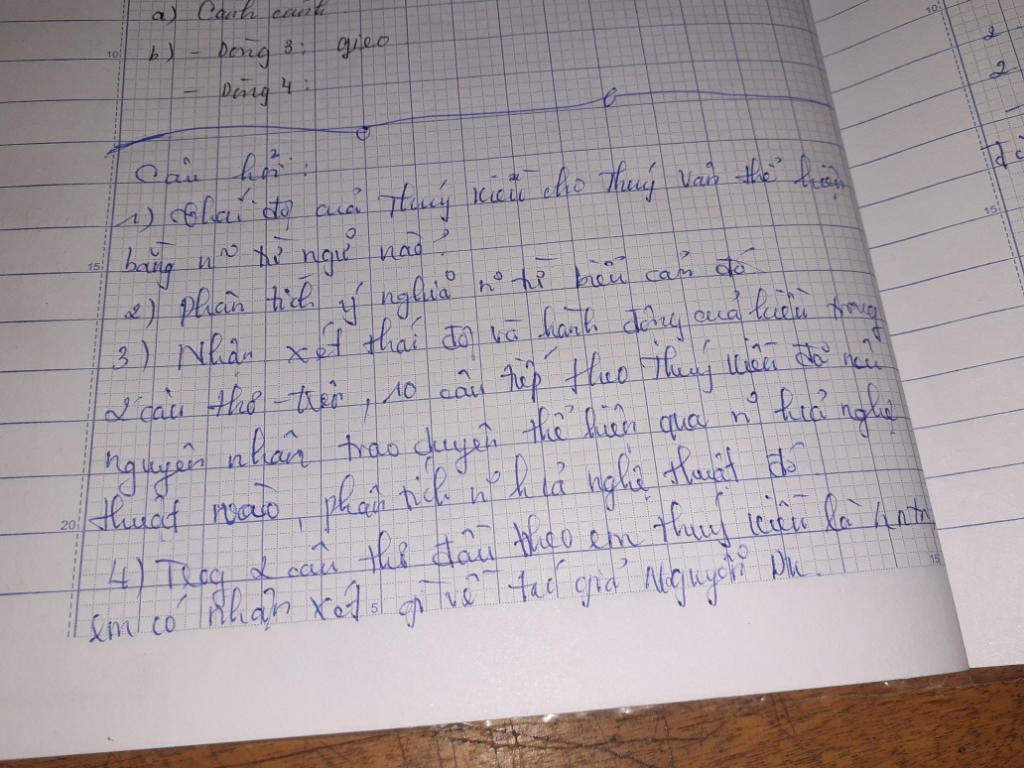 a) Canh cánh
b) - Dòng 3: gieo
- Dòng 4:
Câu hỏi:
1) thái độ của Thuý Kiều cho Thuý Vân thể hiện
bằng n~ từ ngữ nào?
2) phân tích ý nghĩa n~ từ biểu cảm đó
3) Nhận xét thái độ và hành động của kiều trong
2 câu thơ trên, 10 câu tiếp theo Thuý Kiều đã nêu
nguyên nhân trao duyên thể hiện qua n~ h/ả nghệ
thuật nào, phân tích n~ h/ả nghệ thuật đó
4) Trog 2 câu thơ đầu theo em thuý kiều là
em có nhận xét gì về tác giả Nguyễn Du.
10
15
20
5
15
10
15
2
2